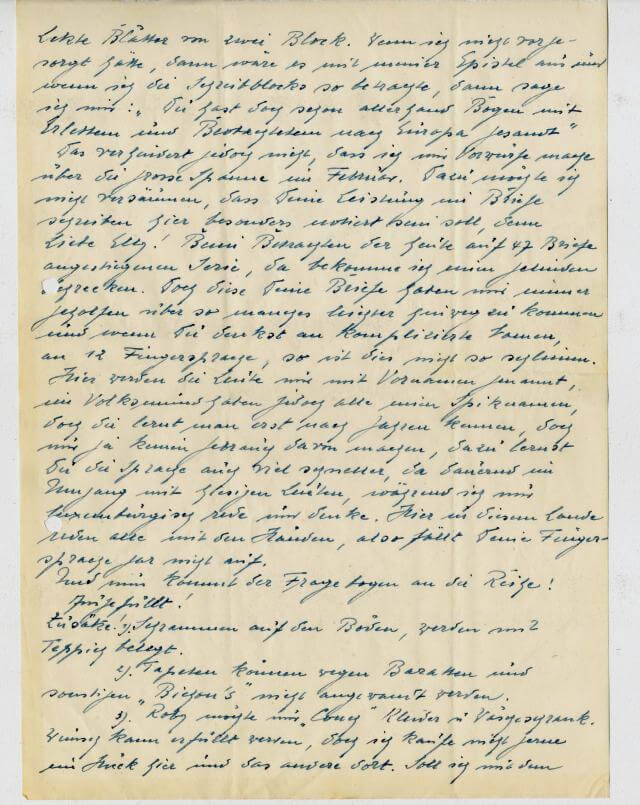 Letzte Blätter von zwei Block. Wenn ich nicht vorge-
sorgt hätte, dann wäre es mit meiner Epistel aus und
wenn ich die Schreibblocks so betrachte, dann sage
ich mir: „Du hast doch schon allerhand Bogen mit
Erlebtem und Beobachtetem nach Europa gesandt"
Das verhindert jedoch nicht, dass ich mir Vorwürfe mache
über die grosse Spanne im Februar. Dazu möchte ich
nicht versäumen, dass Deine Leistung im Briefe
schreiben hier besonders notiert sein soll, denn
Liebe Elly! Beim Betrachten der heute auf 47 Briefe
angestiegenen Serie, da bekomme ich einen gelinden
Schrecken. Doch diese Deine Briefe haben mir immer
geholfen über so manches leichter hinweg zu kommen
und wenn Du denkst an komplizierte Namen,
an 12 Fingersprache, so ist dies nicht so schlimm.
Hier werden die Leute nur mit Vornamen genannt,
im Volksmund haben jedoch alle einen Spitznamen,
doch die lernt man erst nach Jahren kennen, doch
nur ja keinen Gebrauch davon machen, dazu lernst
Du die Sprache auch viel schneller, da dauernd im
Umgang mit hiesigen Leuten, während ich nur
luxemburgisch rede und denke. Hier in diesem Lande
reden alle mit den Händen, also fällt Deine Finger-
sprache gar nicht auf.
Und nun kommt der Fragebogen an die Reihe!
Ausgefüllt!
Zusätze! 1). Schrammen auf den Boden, werden mit
Teppich belegt.
2). Tapeten können wegen Baratten und
sonstigen „Bichon's" nicht angewandt werden.
3). Roby möchte nur „Coney" Kleider u Wäscheschrank.
Wunsch kann erfüllt werden, doch ich kaufe nicht gerne
ein Stück hier und das andere dort. Soll ich mit dem